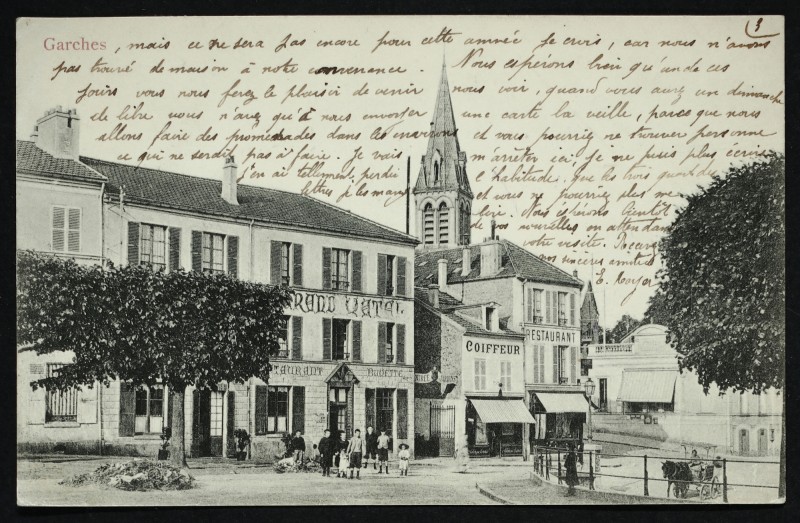 3
Garches, mais ce ne sera pas encore pour cette année je crois, car nous n'avons
pas trouvé de maison à notre convenance. Nous espérons bien qu'un de ces
jours vous nous ferez le plaisir de venir nous voir, quand vous aurez un dimanche
de libre vous n'avez qu'à nous envoyer une carte la veille, parce que nous
allons faire des promenades dans les environs et vous pourriez ne trouver personne
ce qui ne serait pas à faire. Je vais m'arrêter ici je ne puis plus écrire
j'en ai tellement perdu l'habitude, que les trois quarts des
lettres je les mange et vous ne pourriez plus me
lire. Nous espérons bientôt
de vos nouvelles en attendant
votre visite. Recevez
nos sincères amitiés
E.
GRAND HOTEL
RESTAURANT
COIFFEUR
RESTAURANT